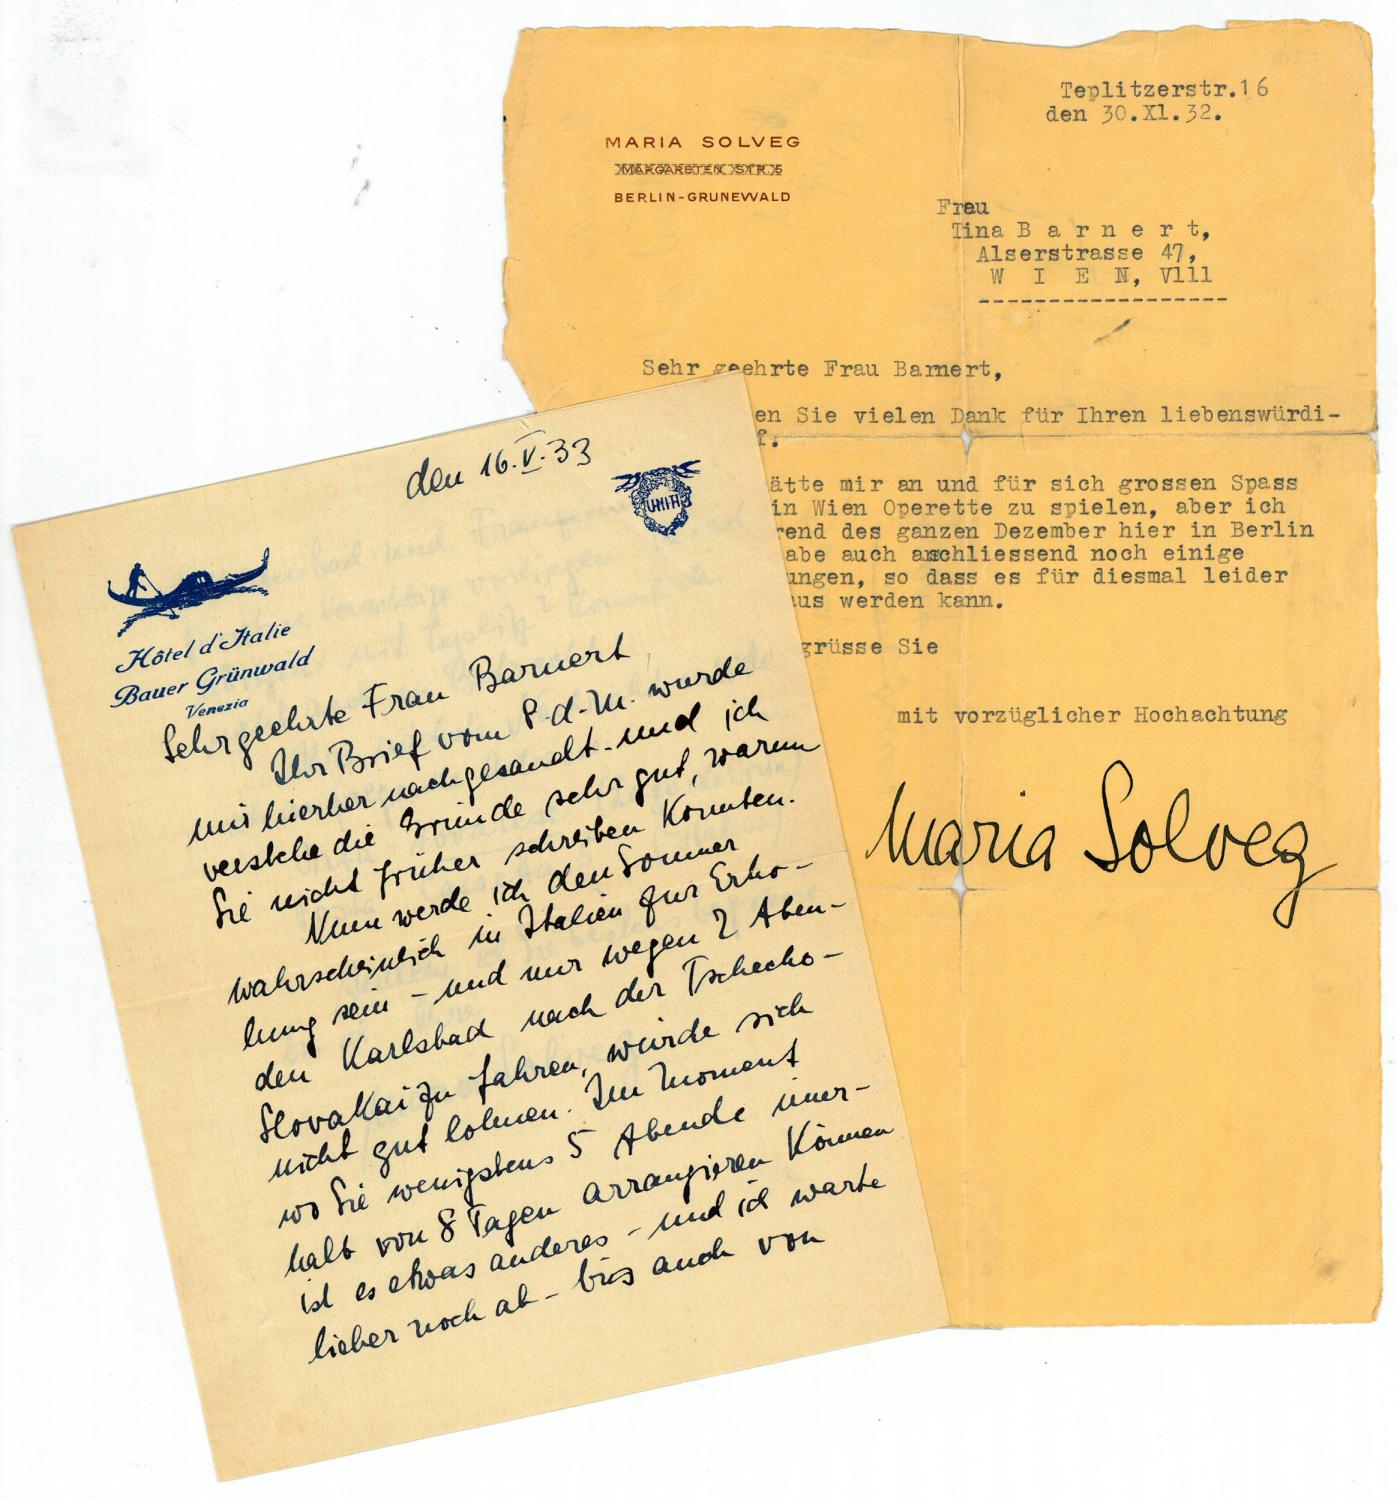 Teplitzerstr.16
den 30.XI.32.
MARIA SOLVEG
MARGARETEN STR 5
BERLIN-GRUNEWALD
Frau
Tina B a r n e r t,
Alserstrasse 47,
W I E N, Vlll
Sehr geehrte Frau Barnert,
en Sie vielen Dank für Ihren liebenswürdi-
f.
ätte mir an und für sich grossen Spass
in Wien Operette zu spielen, aber ich
rend des ganzen Dezember hier in Berlin
abe auch anschliessend noch einige
ungen, so dass es für diesmal leider
aus werden kann.
grüsse Sie
mit vorzüglicher Hochachtung
Maria Solveg
den 16.V.33
UNITI
Hôtel d'Italie
Bauer Grünwald
Venezia
Sehrgeehrte Frau Barnert,
Ihr Brief vom 8.d.M. wurde
mir hierher nachgesandt - und ich
verstehe die Gründe sehr gut, warum
Sie nicht früher schreiben konnten.
Nun werde ich den Sommer
wahrscheinlich in Italien zur Erho-
lung sein - und nur wegen 2 Aben-
den Karlsbad nach der Tschecho-
slovakai zu fahren, würde sich
nicht gut lohnen. Im Moment
wo Sie wenigstens 5 Abende inner-
halb von 8 Tagen arrangieren können
ist es etwas anderes - und ich warte
lieber noch ab - bis auch von